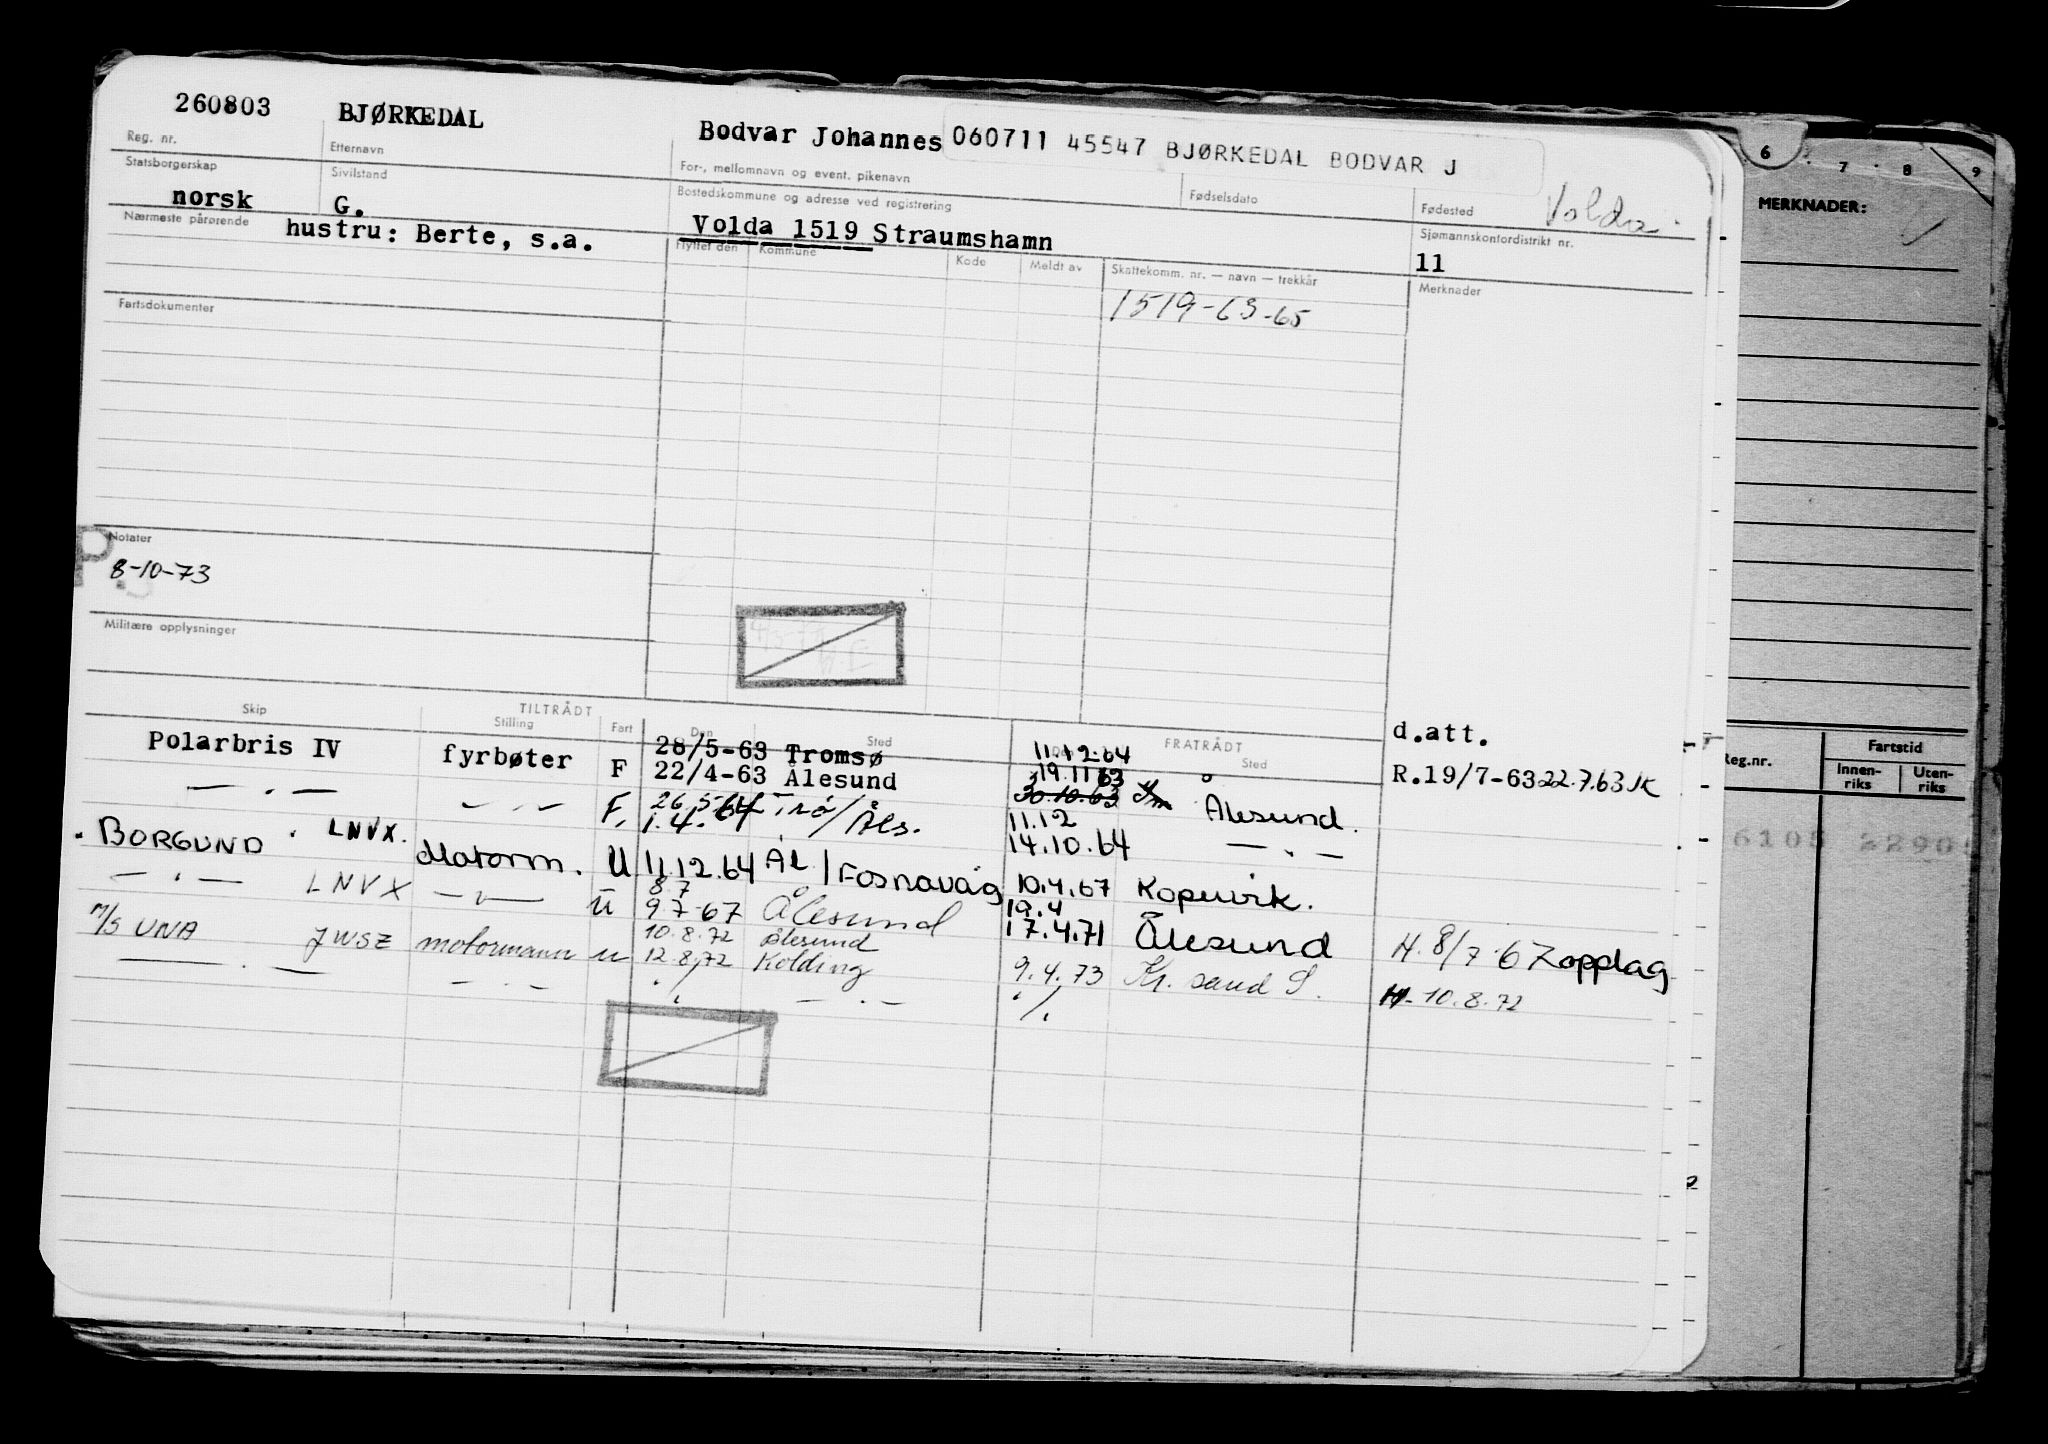 260803 BJØRKEDAL Bodvar Johannes 060711 45547 BJØRKEDAL BODVAR J
Reg. nr. Etternavn For-, mellomnavn og event. pikenavn Fødselsdato Fødested Volda
Statsborgerskap Sivilstand Bostedskommune og adresse ved registrering Sjømannskontordistrikt nr.
norsk G. Volda 1519 Straumshamn 11
Nærmeste pårørende hustru: Berte, s.a.
Flyttet den Kommune Kode Meldt av Skattekomm. nr. — navn — trekkår Merknader
1519-63-65
Fartsdokumenter
Notater
8-10-73
Militære opplysninger
TILTRÅDT FRATRÅDT
Skip Stilling Fart Den Sted Sted
d.att.
Polarbris IV fyrbøter F 28/5-63 Tromsø 11.12.64
22/4-63 Ålesund 19.11.63 R.19/7-63 22.7.63 JK
— " — — " — F. 26.5.64 Trø/Åls. 30.10.63 Ålesund.
1.4. 11.12
BORGUND LNVX. Matorm. U 11.12.64 ÅL/Fosnavåg 14.10.64 — " —
8.7 10.4.67 Kopervik.
— " — LNVX — " — U 9.7-67 Ålesund 19.4
17.4.71 Ålesund H. 8/7-67 opplag
M/S UNA JWSZ motormann u 10.8.72 Ålesund
12.8.72 Kolding 9.4.73 Kr. sand S. H. 10.8.72
— . — — . — ./. — . — ./.
6 . 7 . 8 9
MERKNADER:
Reg.nr. Fartstid
Innen-riks Uten-riks